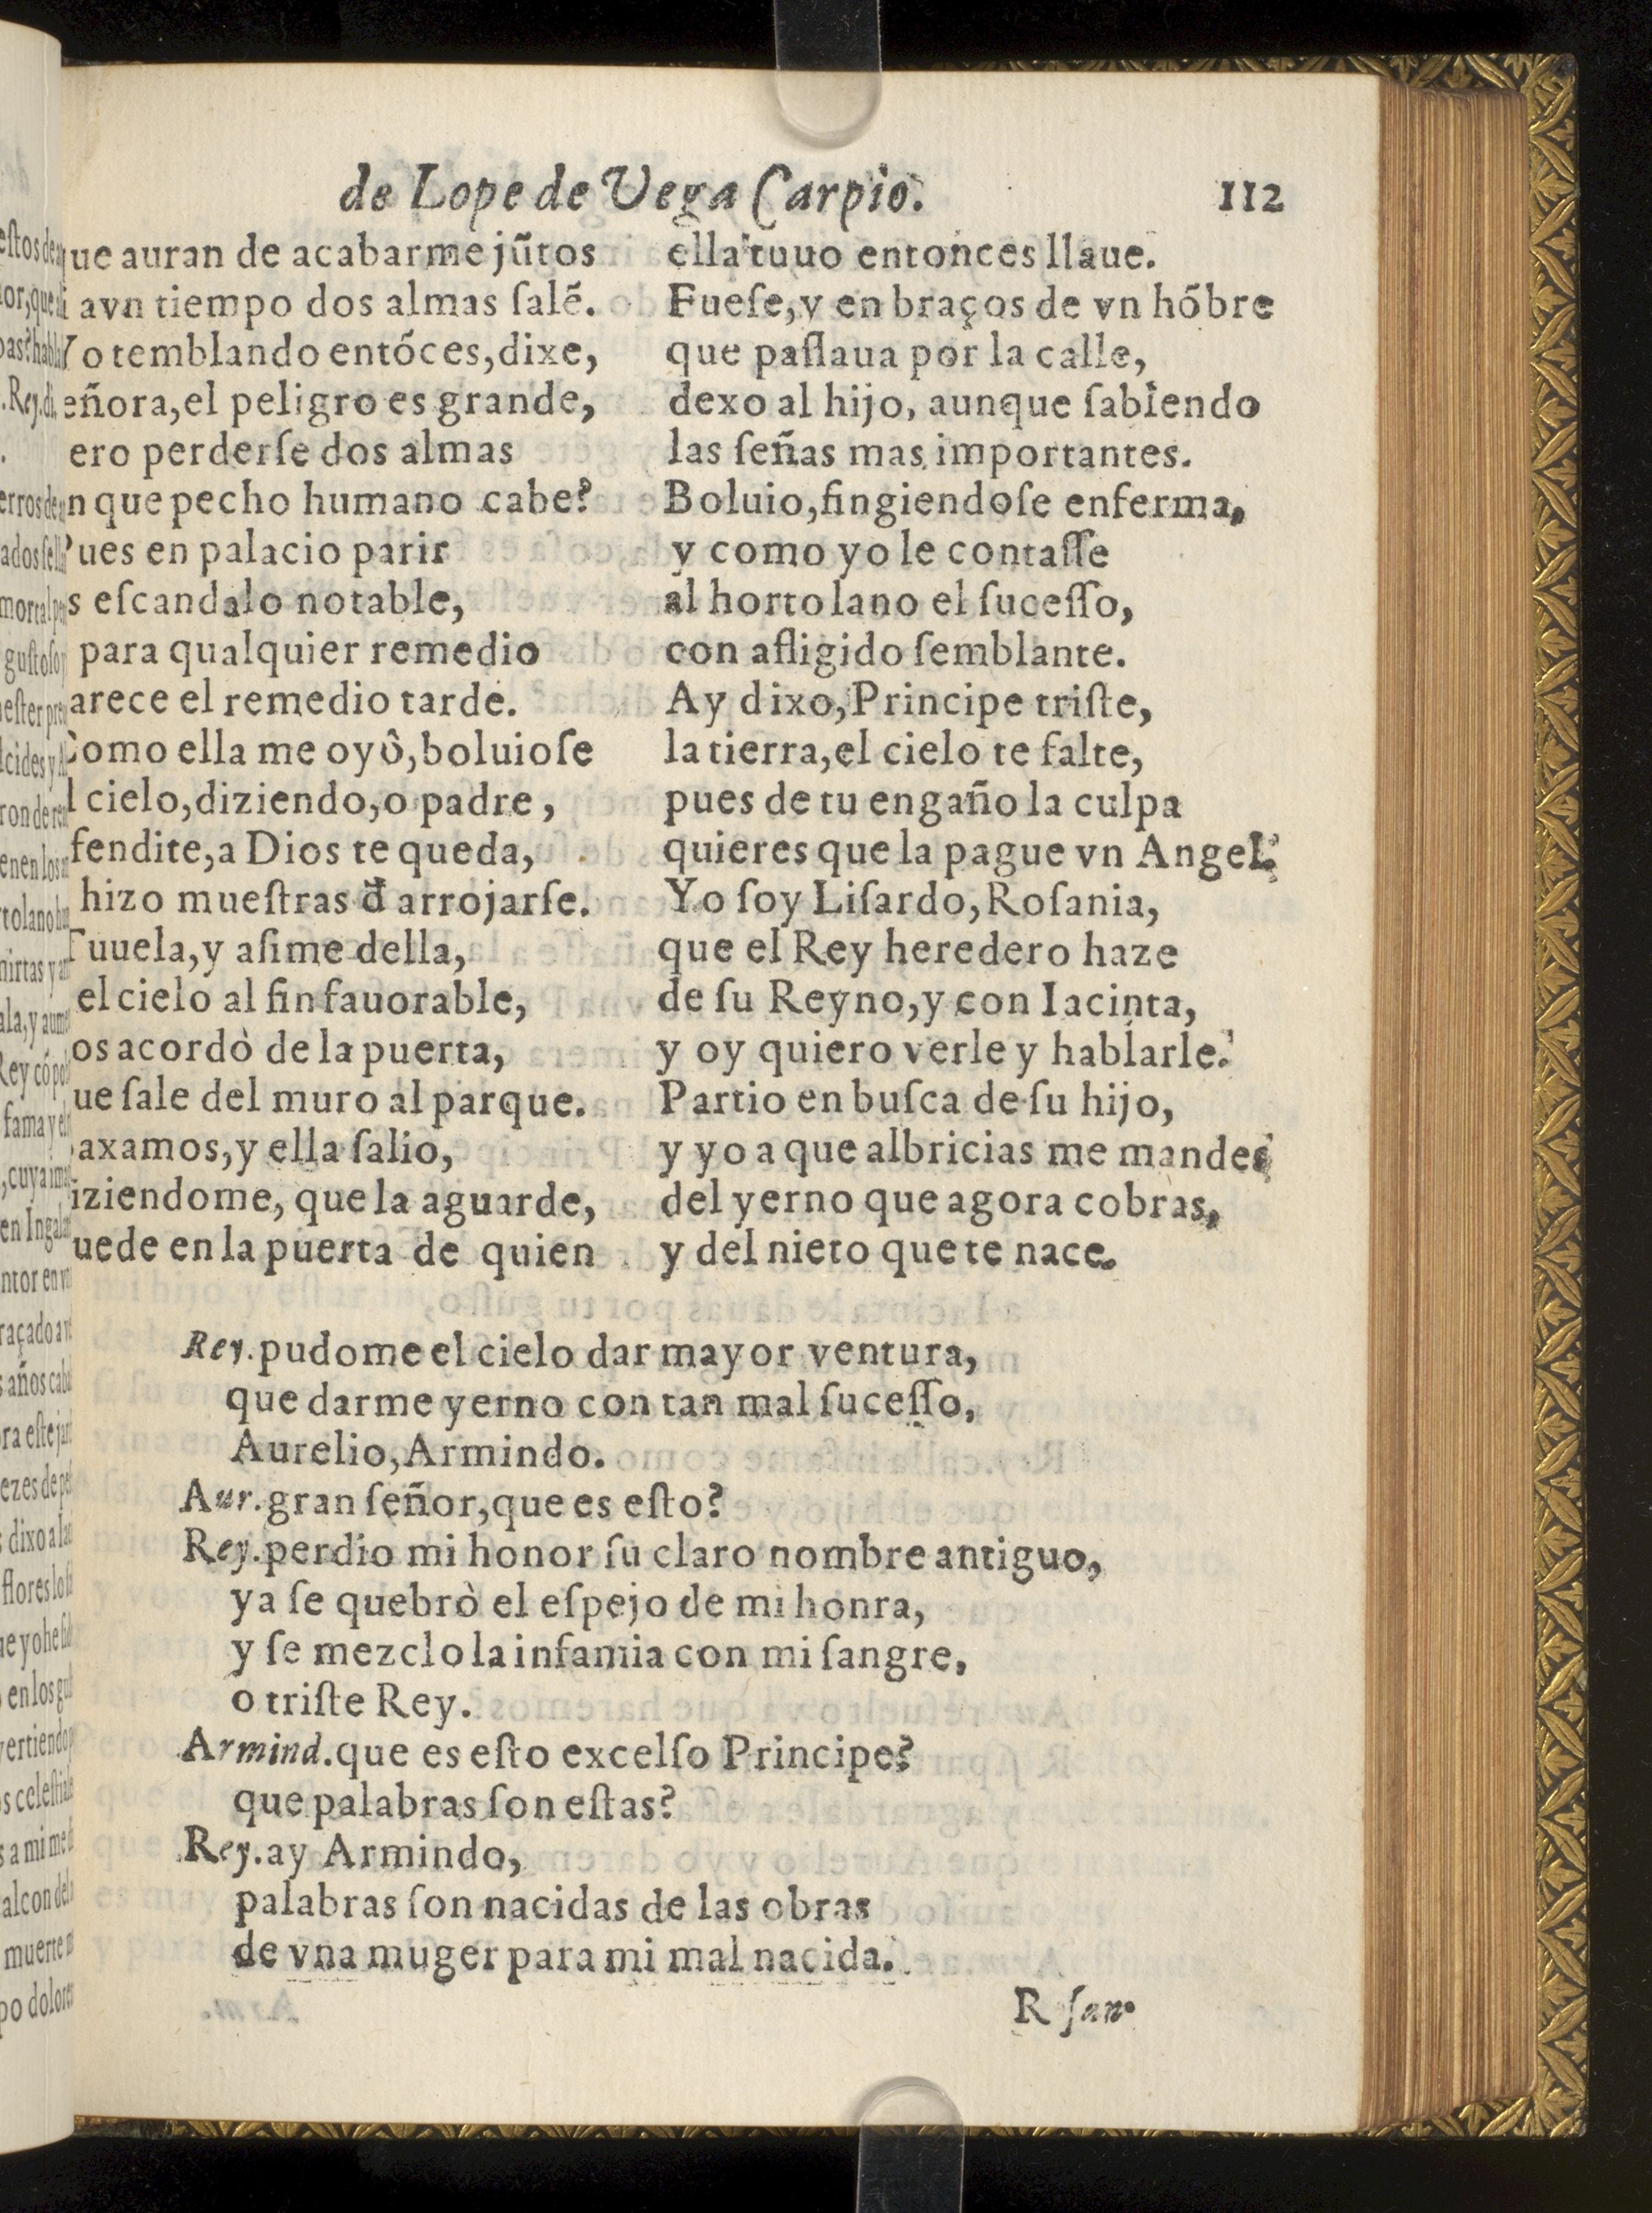 de Lope de Vega Carpio. 112
ue auran de acabarme jũtos
i avn tiempo dos almas ſalẽ.
Yo temblando entóces,dixe,
eñora,el peligro es grande,
ero perderſe dos almas
n que pecho humano cabe?
Pues en palacio parir
s eſcandalo notable,
para qualquier remedio
arece el remedio tarde.
Como ella me oyô,boluioſe
l cielo,diziendo,o padre,
fendite,a Dios te queda,
hizo mueſtras đ arrojarſe.
Tuuela,y aſime della,
el cielo al fin fauorable,
os acordò de la puerta,
ue ſale del muro al parque.
axamos,y ella ſalio,
iziendome, que la aguarde,
uede en la puerta de quien
ella tuuo entonces llaue.
Fueſe,y en braços de vn hóbre
que paſſaua por la calle,
dexo al hijo, aunque ſabiendo
las ſeñas mas importantes.
Boluio,fingiendoſe enferma,
y como yo le contaſſe
al hortolano el ſuceſſo,
con afligido ſemblante.
Ay dixo,Principe triſte,
la tierra,el cielo te falte,
pues de tu engaño la culpa
quieres que la pague vn Angel.
Yo ſoy Liſardo,Roſania,
que el Rey heredero haze
de ſu Reyno,y con Iacinta,
y oy quiero verle y hablarle.
Partio en buſca de ſu hijo,
y yo a que albricias me mandes
del yerno que agora cobras,
y del nieto que te nace.
Rey.pudome el cielo dar mayor ventura,
que darme yerno con tan mal ſuceſſo,
Aurelio,Armindo.
Aur.gran ſeñor,que es eſto?
Rey.perdio mi honor ſu claro nombre antiguo,
ya ſe quebrò el eſpejo de mi honra,
y ſe mezclo la infamia con mi ſangre,
o triſte Rey.
Armind.que es eſto excelſo Principe?
que palabras ſon eſtas?
Rey.ay Armindo,
palabras ſon nacidas de las obras
de vna muger para mi mal nacida.
R ſan.